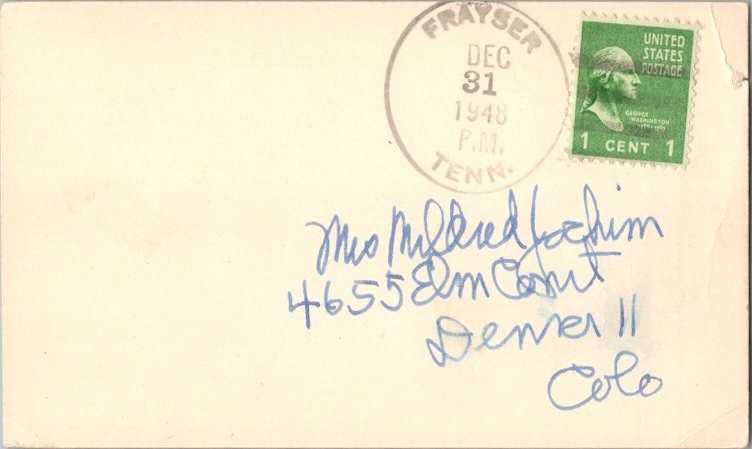 FRAYSER
DEC
31
1948
P.M.
TENN.
UNITED
STATES
POSTAGE
GEORGE
WASHINGTON
1 CENT 1
Mrs Mildred Jochim
4655 Elm Court
Denver 11
Colo